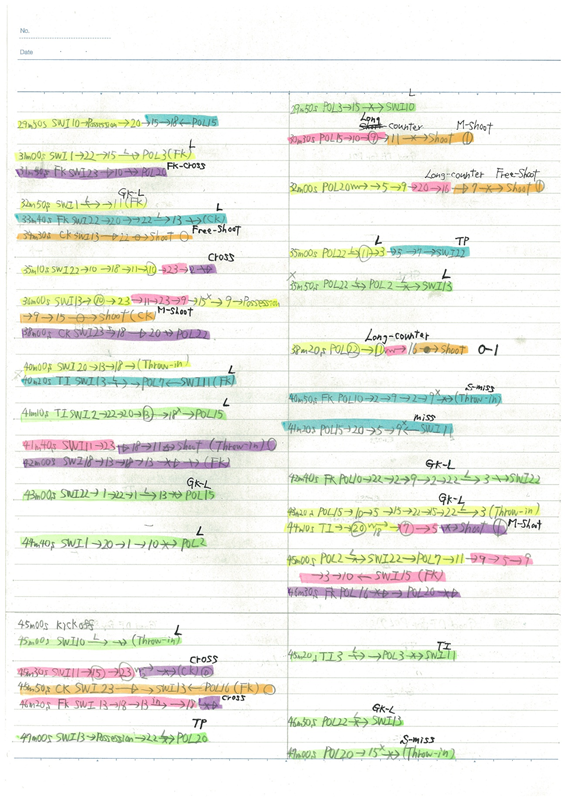 No.
Date
29m30s SWI10→Possession→20→15→18←POL15
31m00s SWI1→22→15→POL3(FK)
FK-cross
31m50s FK SWI23→10→POL20
GK-L
32m50s SWI1→11(FK)
L
33m40s FK SWI22→20→22→13×(CK)
34m30s CK SWI13→22→Shoot
Free-Shoot
Cross
35m10s SWI22→10→18→11→10→23→
36m00s SWI13→20→23→11→23→9→15×→9→Possession
→9→15→Shoot(CK)
M-Shoot
38m00s CK SWI23→18→20→POL22
40m00s SWI20→13→18→(Throw-in)
L
40m20s TI SWI13→→POL7←SWI11(FK)
L
41m10s TI SWI2→22→20→13→18×→POL15
41m40s SWI11→23→18→11→Shoot (Throw-in)
42m00s SWI18→13→18→13→(FK)
GK-L
43m00s SWI22→1→22→1→13→POL15
L
44m40s SWI1→20→1→10→POL2
45m00s Kickoff
L
45m00s SWI10→→(Throw-in)
Cross
45m30s SWI11→15→23→(CK)
45m50s CK SWI23→→SWI13←POL16(FK)
46m20s FK SWI13→18→13→→18→
Cross
TP
47m00s SWI13→Possession→22→POL20
L
29m50s POL3→15→SWI10
Long counter
M-Shoot
31m30s POL15→10→7→11→Shoot 1
Long-counter
Free-Shoot
32m00s POL20→5→9→20→16→7→Shoot 1
L
TP
35m00s POL22→11→3→5→7→SWI22
L
35m50s POL22→POL2→SWI13
Long-counter
38m20s POL22→11→16→Shoot 0-1
S-miss
40m50s FK POL10→2→9→2→9×→(Throw-in)
miss
41m20s POL15→20→5→9←SWI1
GK-L
42m40s FK POL10→22→2→9→2→22→3→SWI22
GK-L
43m20s POL15→10→5→15→21→15→22→3(Throw-in)
44m10s TI→20→18→7→5→Shoot 1
M-Shoot
45m00s POL2→SWI22→POL7→11→9→5→9
→3→10←SWI15(FK)
46m30s FK POL16→POL20
TI
45m20s TI3→→POL3→SWI11
GK-L
46m30s POL22→SWI13
S-miss
47m00s POL20→15×→(Throw-in)